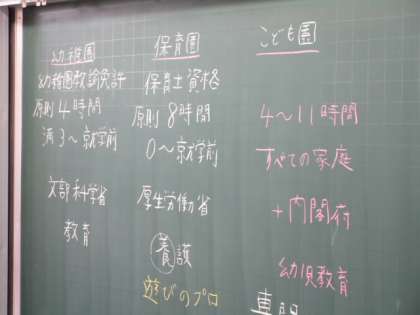 幼稚園
幼稚園教諭免許
原則4時間
満3〜就学前
文部科学省
教育
保育園
保育士資格
原則8時間
0〜就学前
厚生労働省
養護
遊びのプロ
こども園
4〜11時間
すべての家庭
+内閣府
幼児教育
専門